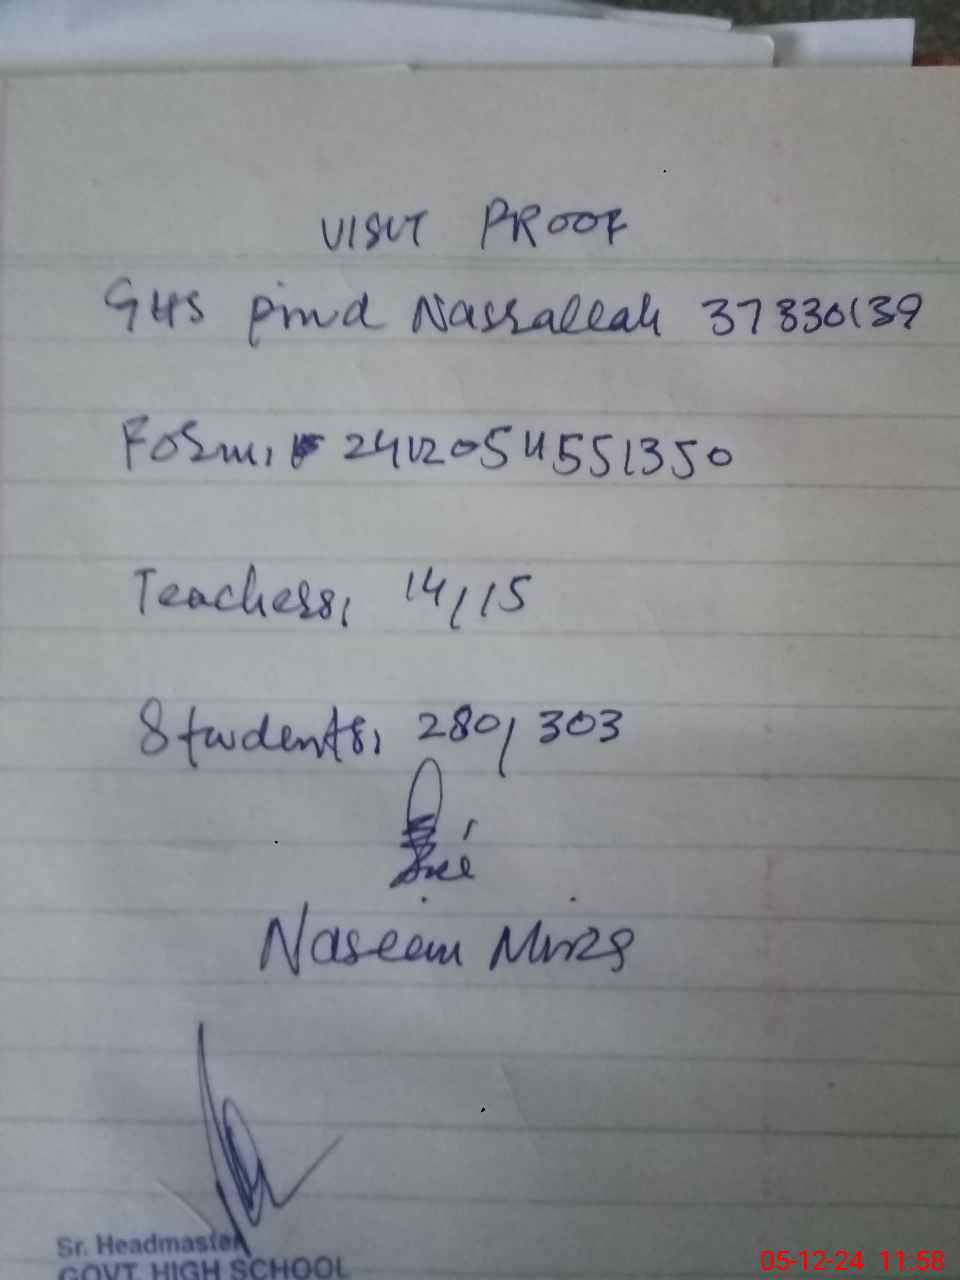 VISIT PROOF
GHS Pind Nasrallah 37330139
Form, 2412054551350
Teachers, 14/15
Students, 280/303
Naseem Mirza
Sr. Headmaster
GOVT. HIGH SCHOOL
05-12-24 11:58